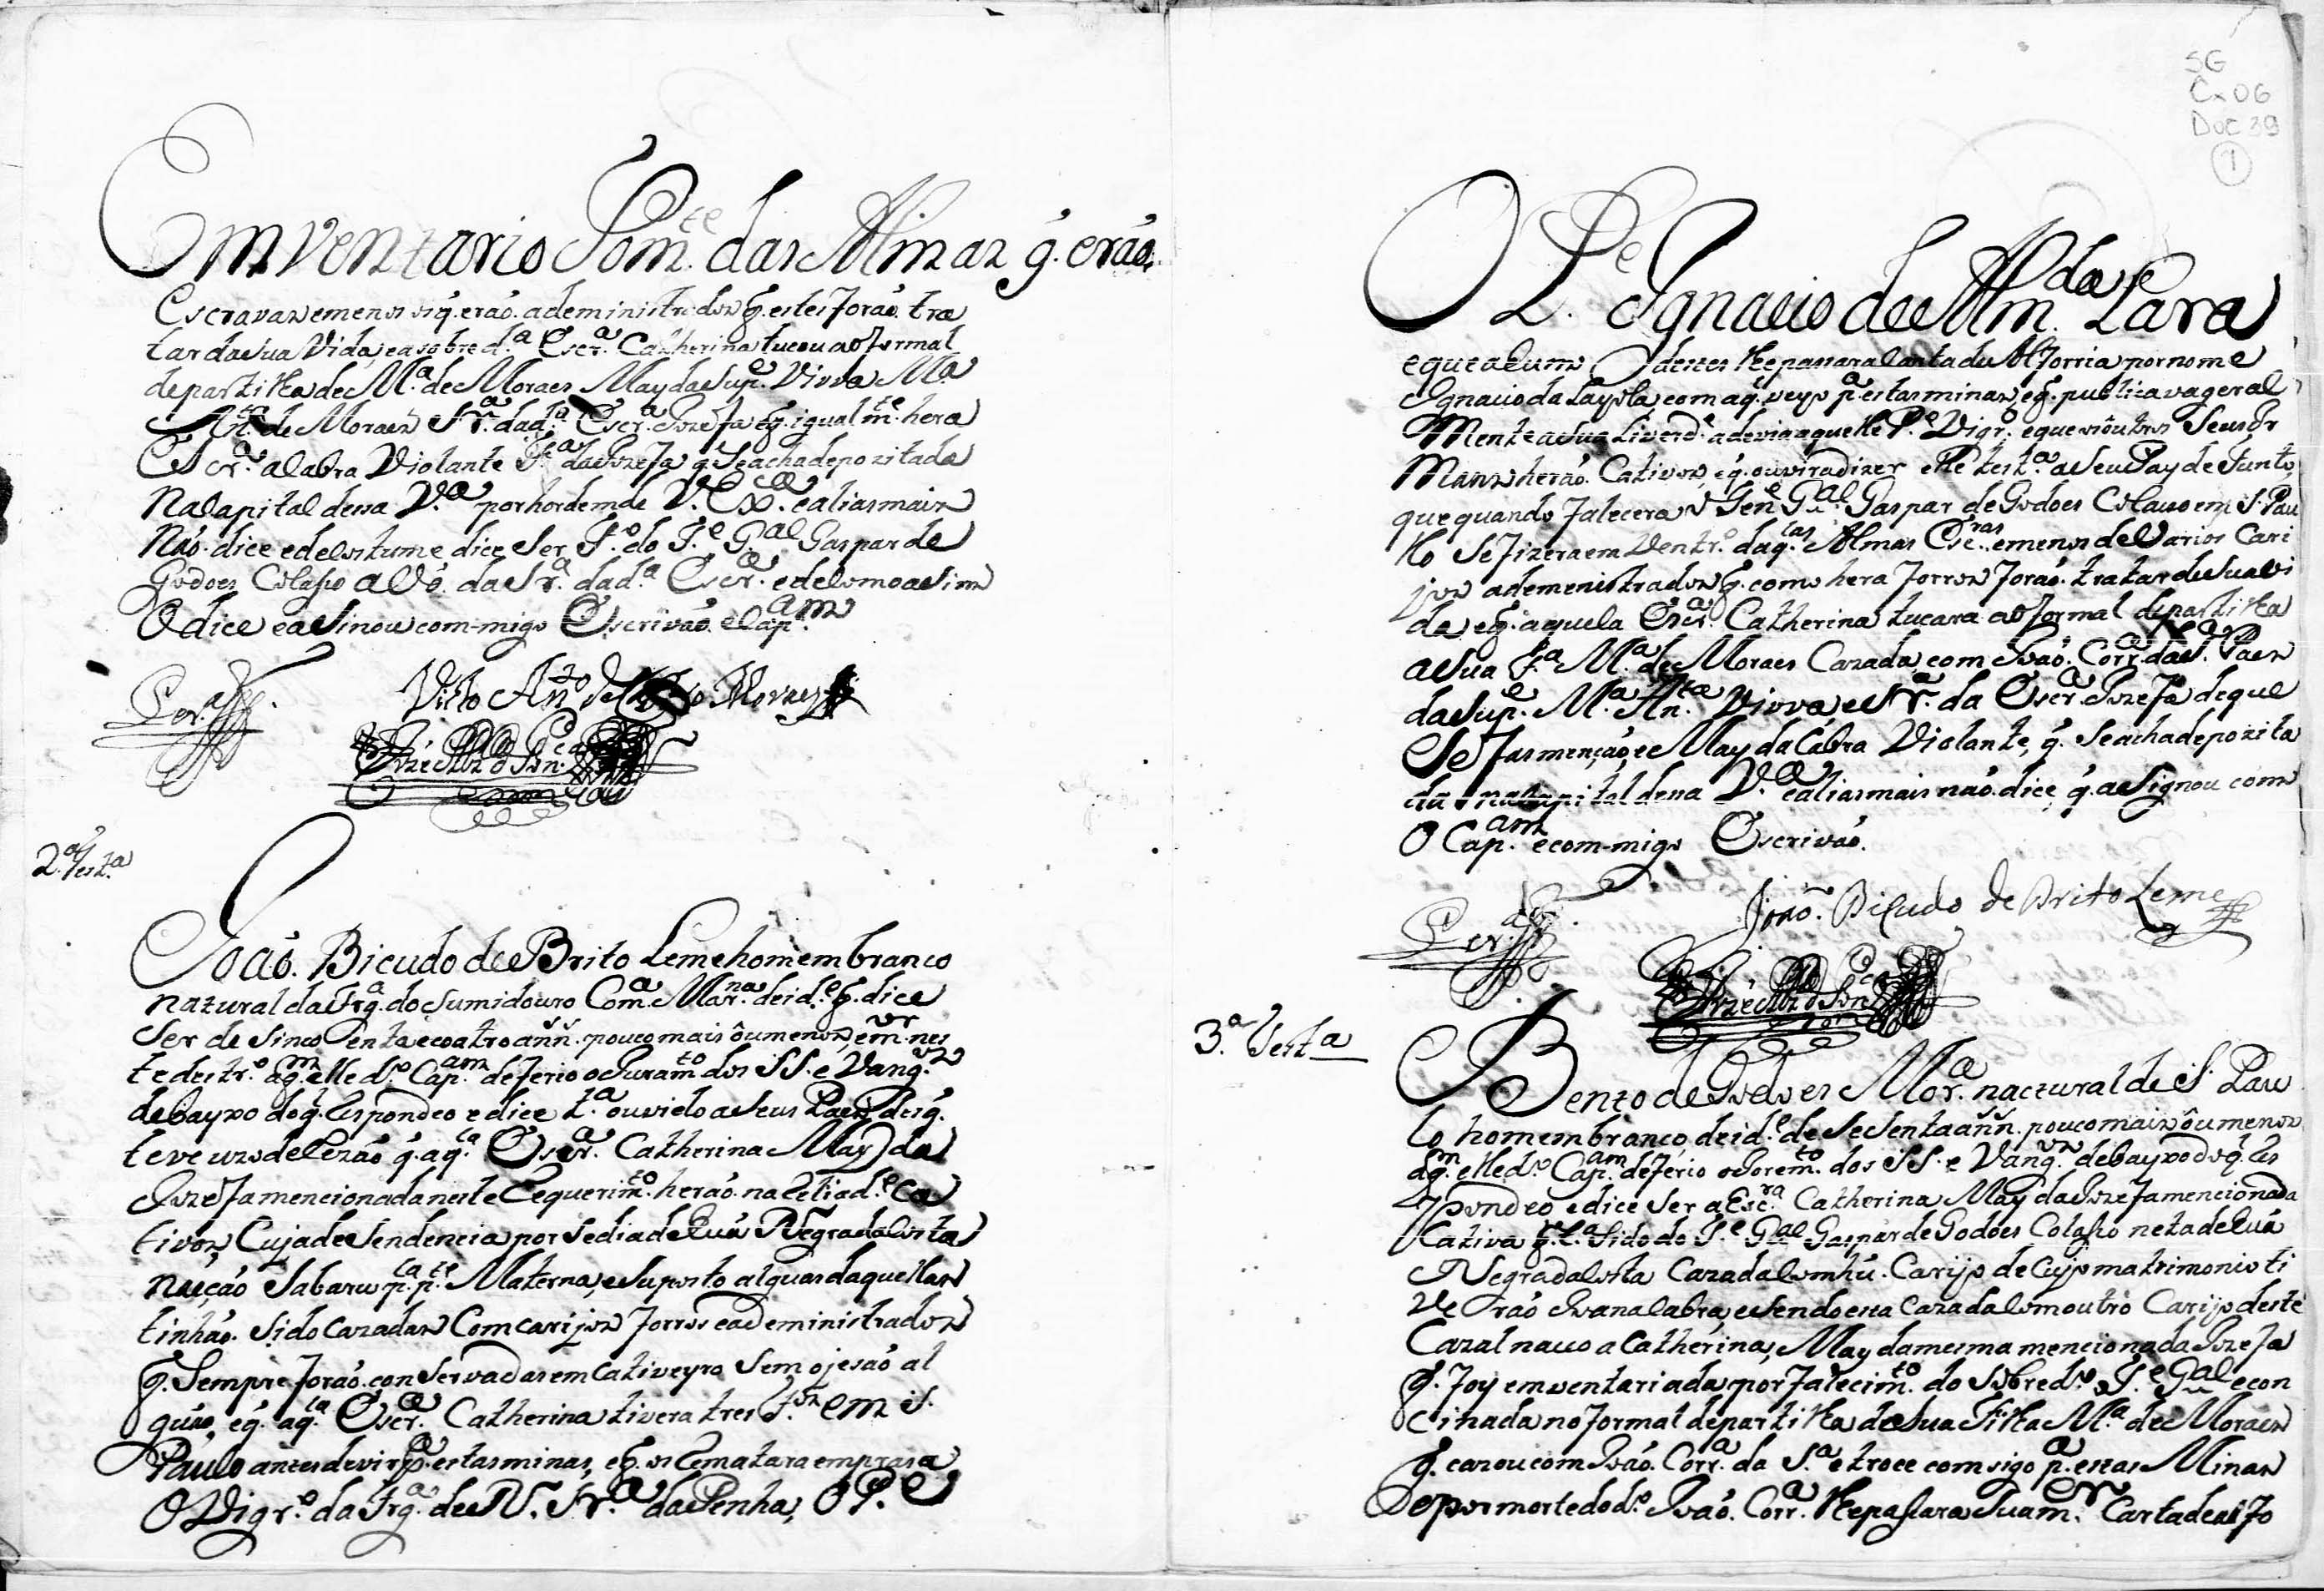 Emventario Som.te das Almas q. erão
Escravas e menos os q. erão adeministrados q. estes forão tra
tar da sua Vida, ea sobred.ª Escr.ª Catherina tucou ao formal
de partilha de M.ª de Moraes May da Sup.e Viuva M.ª
An.ta de Moraes Sr.ª da d.ª Escr.ª Jozefa eq. igualm.te hera
Escr.ª a Cabra Violante F.ª da Jozefa q. Se acha depozitada
Na Capital desa V.ª por hordem de V. Ex.cia e alias mais
Não dice e de Costume dice Ser F.º do S.e G.al Gaspar de
Godoes Colasso a Vó da Sr.ª da d.ª Escr.ª e de Como asim
O dice e a Sinou com-migo Escrivão e Cap.am
Victo An.to de Moraes
2.ª Test.ª
João Bicudo de Brito Leme homem branco
natural da Frg.ª do Sumidouro Com.ca Mar.na de id.e q. dice
Ser de Sinco Centa e coatro ann.s pouco mais ôu menos, em.or nes
te destr.º aq.m elle d.º Cap.am deferio o Juram.to dos SS.e Vang.os
debayxo do q.l Respondeo e dice t.ª ouvido a Seus Paes des q.
teve uzo de Rezão q. aq.la Escr.ª Catherina May da
Jozefa mencionada neste Requerim.to herão na Relid.e Ca
tivos Cuja desendencia por Sedia de hua Negra da Costa
nacão Sabaru p.la p.te Materna, e Suposto alguas daquellas
tinhão Sido Cazadas Com carijos forros e adeministrados
q. Sempre forão conServadas em Cativeyro Sem ojesão al
gua, eq. aq.la Escr.ª Catherina tivera tres F.os em S.
Paulo antes de vir p.ª estas minas, eq. os Rematara em prasa
O Vigr.º da Frg.ª de N. Sr.ª da Penha, O P.e
SG
Cx 06
Doc 39
1
O P.e Ignacio de Alm.da e Lara
e que a hum destes lhe pasara Carta de Alforria por nome
Ignacio da Layola com aq.l veyo p.ª estas minas, eq. publicava geral
Mente a Sua Liverd.e a devia aquelle P.e Vigr.º e que os ôutros Seus Ir
Mans herão Cativos, eq. ouvira dizer elle test.ª a Seu Pay defunto
que quando falecera o Ten.e G.al Gaspar de Godoes Colaso em S. Pau
lo Se fizera em Ventr.º daq.las Almas Esc.ras e menos de Varios Cari
jos ademenistrados q. como hera forros forão tratar de Sua vi
da, eq. aquela Escr.ª Catherina tucara ao formal de partilha
a Sua F.ª M.ª de Moraes Cazada com João Corr.ª da S.ª Paes
da Sup.e M.ª An.ta Viuva e Sr.ª da Escr.ª Jozefa de que
Se fas menção, e May da Cabra Violante, q. Se acha depozita
da na Capital desa V.ª e alias mais não dice q. a Signou com
O Cap.am e com-migo Escrivão.
João Bicudo de Brito Leme
3.ª Test.ª
Bento de Godoes Mor.ª nactural de S. Pau
lo homem branco, de id.e de Se Senta ann.s pouco mais ôu menos
aq.m elle d.º Cap.am deferio o Jorem.to dos SS.e Vang.os debayxo do q.l Res
pondeo e dice Ser a Esc.ra Catherina May da Jozefa mencionada
Cativa q. t.ª Sido do S.e G.al Gaspar de Godoes Colasso neta de hua
Negra da Costa Cazada Com hu Carijo de Cujo matrimonio ti
Verão Joana Cabra, e Sendo esa Cazada Com outro Carijo deste
Cazal naceo a Catherina, May da mesma mencionada Jozefa
q. foy emventariada por falecim.to do Sobred.º S.e G.al e con
Cinada no formal de partilha de Sua Filha M.ª de Moraes
q. cazou com João Corr.ª da S.ª e troce comsigo p.ª estas Minas
e por morte do d.º João Corr.ª lhe pasara Sua m.er Carta de alfo